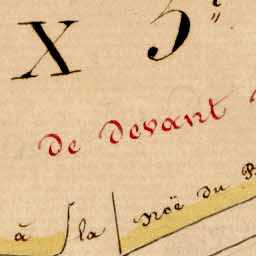 X 5.e
de devant
à la noë du